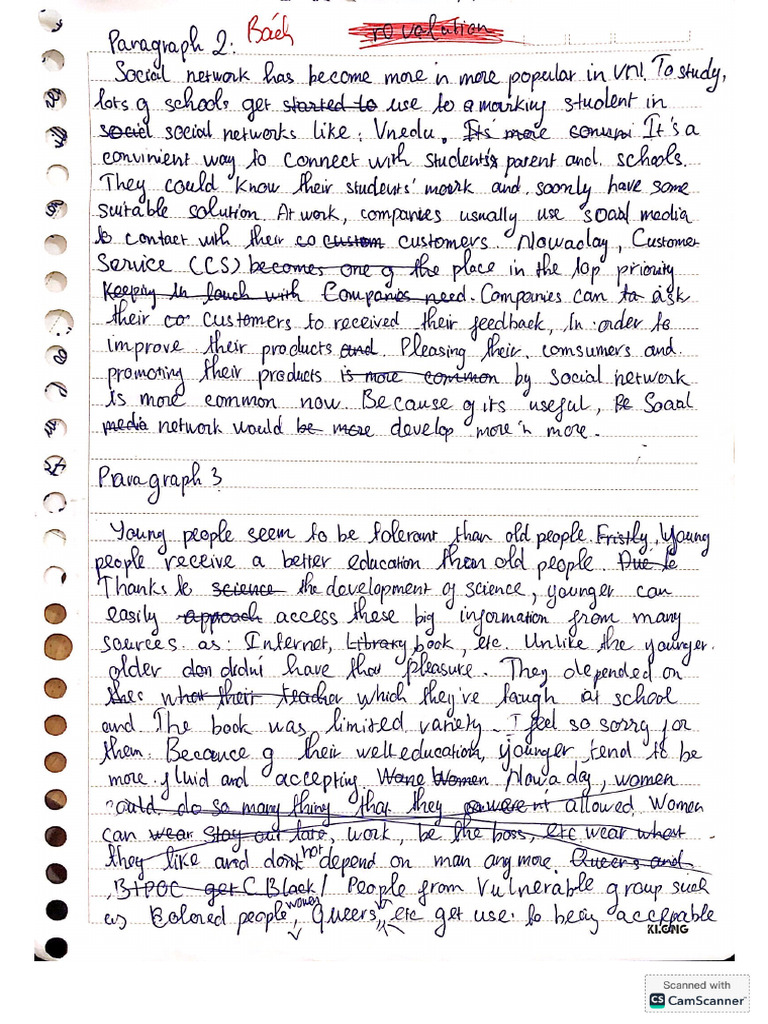 Paragraph 2: Bách revolution
Social network has become more 'n more popular in VN. To study,
lots of schools get started to use to a marking student in
social social networks like: Vnedu. Its more It's a
convinient way to connect with students's parent and schools.
They could know their students' mark and soonly have some
suitable solution. At work, companies usually use social media
to contact with their co custom customers. Nowaday, Customer
Service (CS) becomes one of the place in the top priority
Keeping in touch with Companies need. Companies can to ask
their co customers to received their feedback, In order to
improve their products and. Pleasing their comsumers and
promoting their products is more common by social network
is more common now. Because of its useful, Be Social
media network would be more develop more 'n more.
Pravagraph 3
Young people seem to be tolerant than old people. Fristly, Young
people receive a better education than old people. Due to
Thanks to science the development of science, younger can
easily approach access these big information from many
sources as: Internet, Library book, etc. Unlike the younger
older don didn't have that pleasure. They depended on
what their teacher which they've taugh at school
and. The book was limited variety. I feel so sorry for
them. Because of their well education, younger tend to be
more fluid and accepting. Women Nowaday, women
could do so many thing that they weren't allowed. Women
can wear Stay out late, work, be the boss, etc wear what
they like and dont not depend on man anymore. Queers and
BIPOC get C Black / People from Vulnerable group such
as Colored people, women, Queers, etc get use to being acceptable
KLONG
Scanned with
CS CamScanner